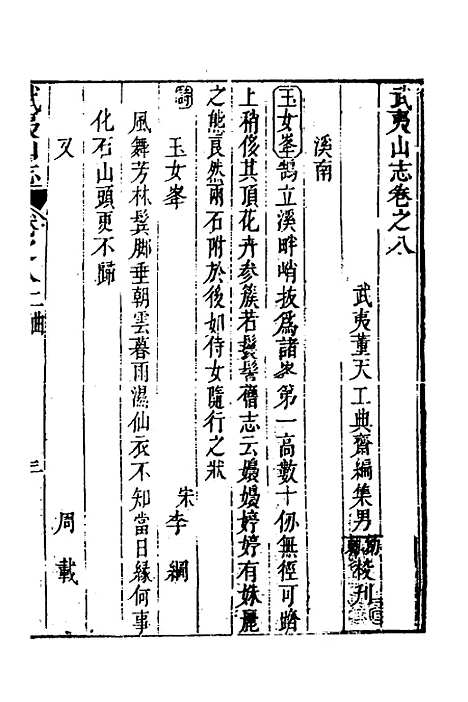 武夷山志卷之八
武夷董天工典齋編集男校刊
溪南
玉女峯鵠立溪畔峭拔為諸峯第一高數十仞無徑可躋
上稍侈其頂花卉參簇若鬟髻舊志云嫚嫚婷婷有姝麗
之態良然兩石附於後如侍女隨行之狀
詩 玉女峯 朱李綱
風舞芳林鬓脚垂朝雲暮雨濕仙衣不知當日緣何事
化石山頭更不歸
又 周載
武夷山志 卷之八二曲 三